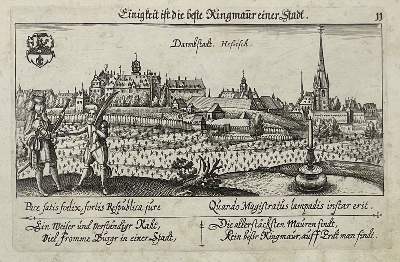 Einigkeit ist die beste Ringmaur einer Stadt.
11
Darmbstadt. Hessisch.
Pace satis felix, fortis Respublica jure
Quando Magistratus lampadis instar erit.
Ein Weiser und verständiger Raht,
Viel fromme Bürgr in einer Stadt,
Die allerstäcksten Mauren sindt,
Kein beßr Ringmaur auff Erdt man findt.